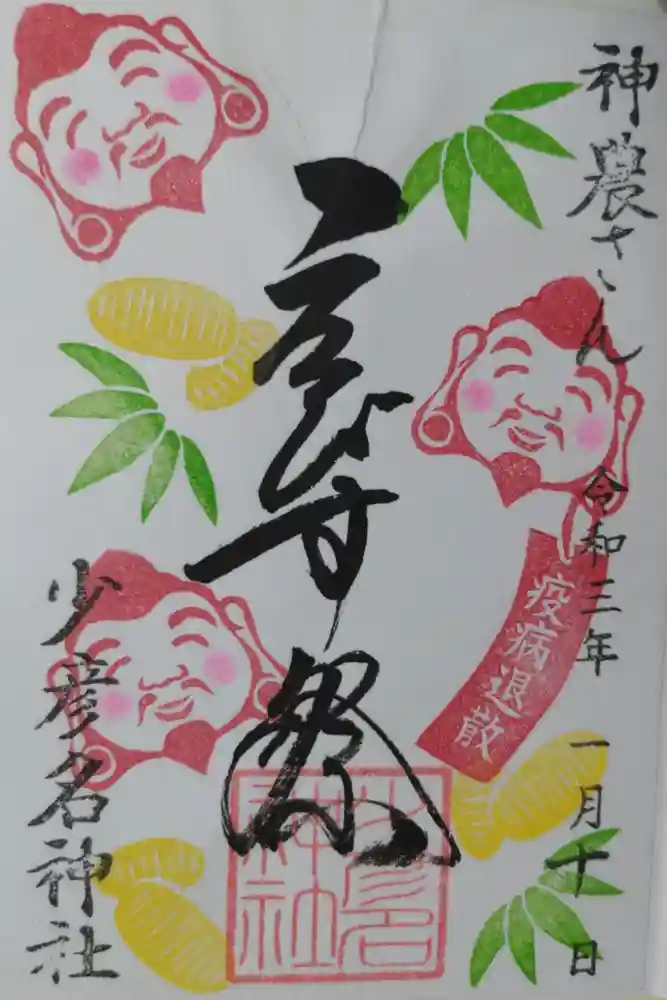 神農さん
令和三年 一月十日
疫病退散
戎祭
少彦名神社
少彦名神社